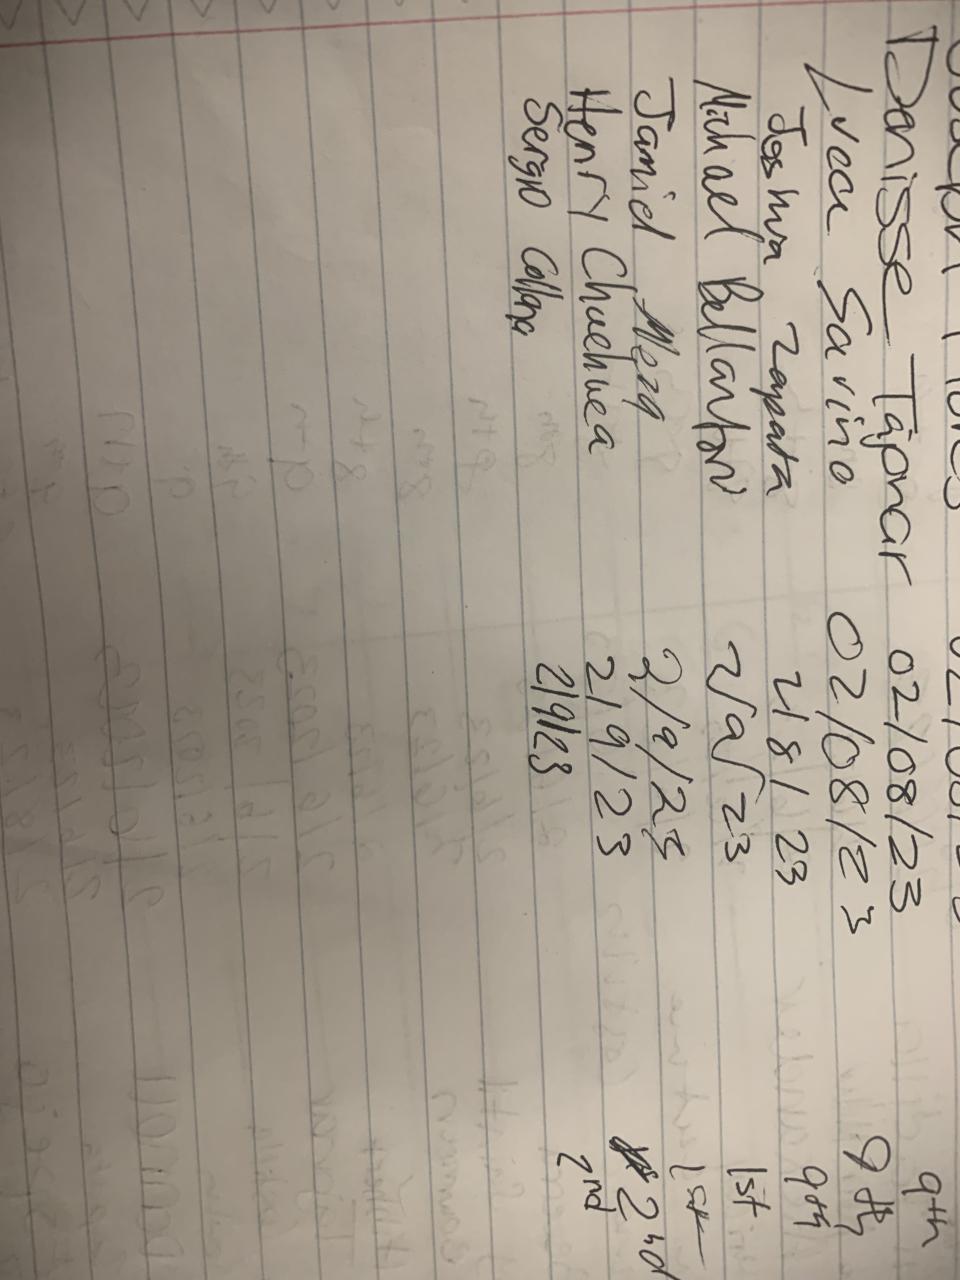 Danisse Tajonar 02/08/23 9th
Luca Savino 02/08/23 9th
Joshua Zapata 2/8/23 9th
Michael Bellantoni 2/9/23 1st
Jamiel Meza 2/9/23 1st
Henry Chuchuca 2/9/23 2nd
Sergio Collana 2/9/23 2nd